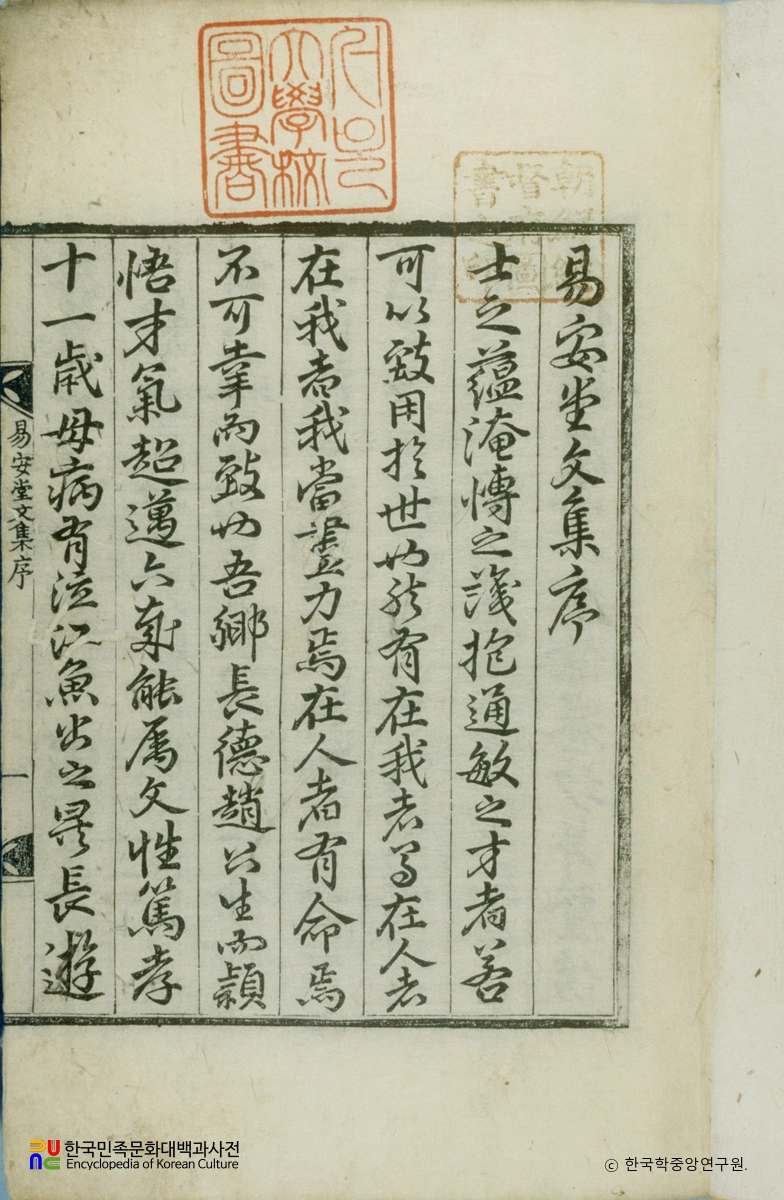 서울大學校圖書
朝鮮總督府圖書之印
易安堂文集序
士之蘊淹博之識抱通敏之才者若
可以致用扵世也然有在我者焉在人者
在我者我當盡力焉在人者有命焉
不可幸而致也吾鄉長德趙公生而穎
悟才氣超邁六歲能属文性篤孝
十一歲母病有泣江魚出之異長遊
易安堂文集序
一
한국민족문화대백과사전
Encyclopedia of Korean Culture
ⓒ 한국학중앙연구원.